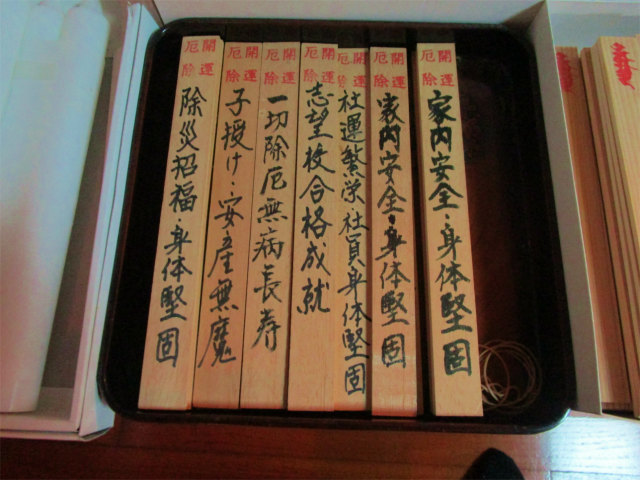 開運
厄除
家内安全・身体堅固
開運
厄除
家内安全・身体堅固
開運
厄除
社運繁栄・社員身体堅固
開運
厄除
志望校合格成就
開運
厄除
一切除厄無病長寿
開運
厄除
子授け・安産無魔
開運
厄除
除災招福・身体堅固